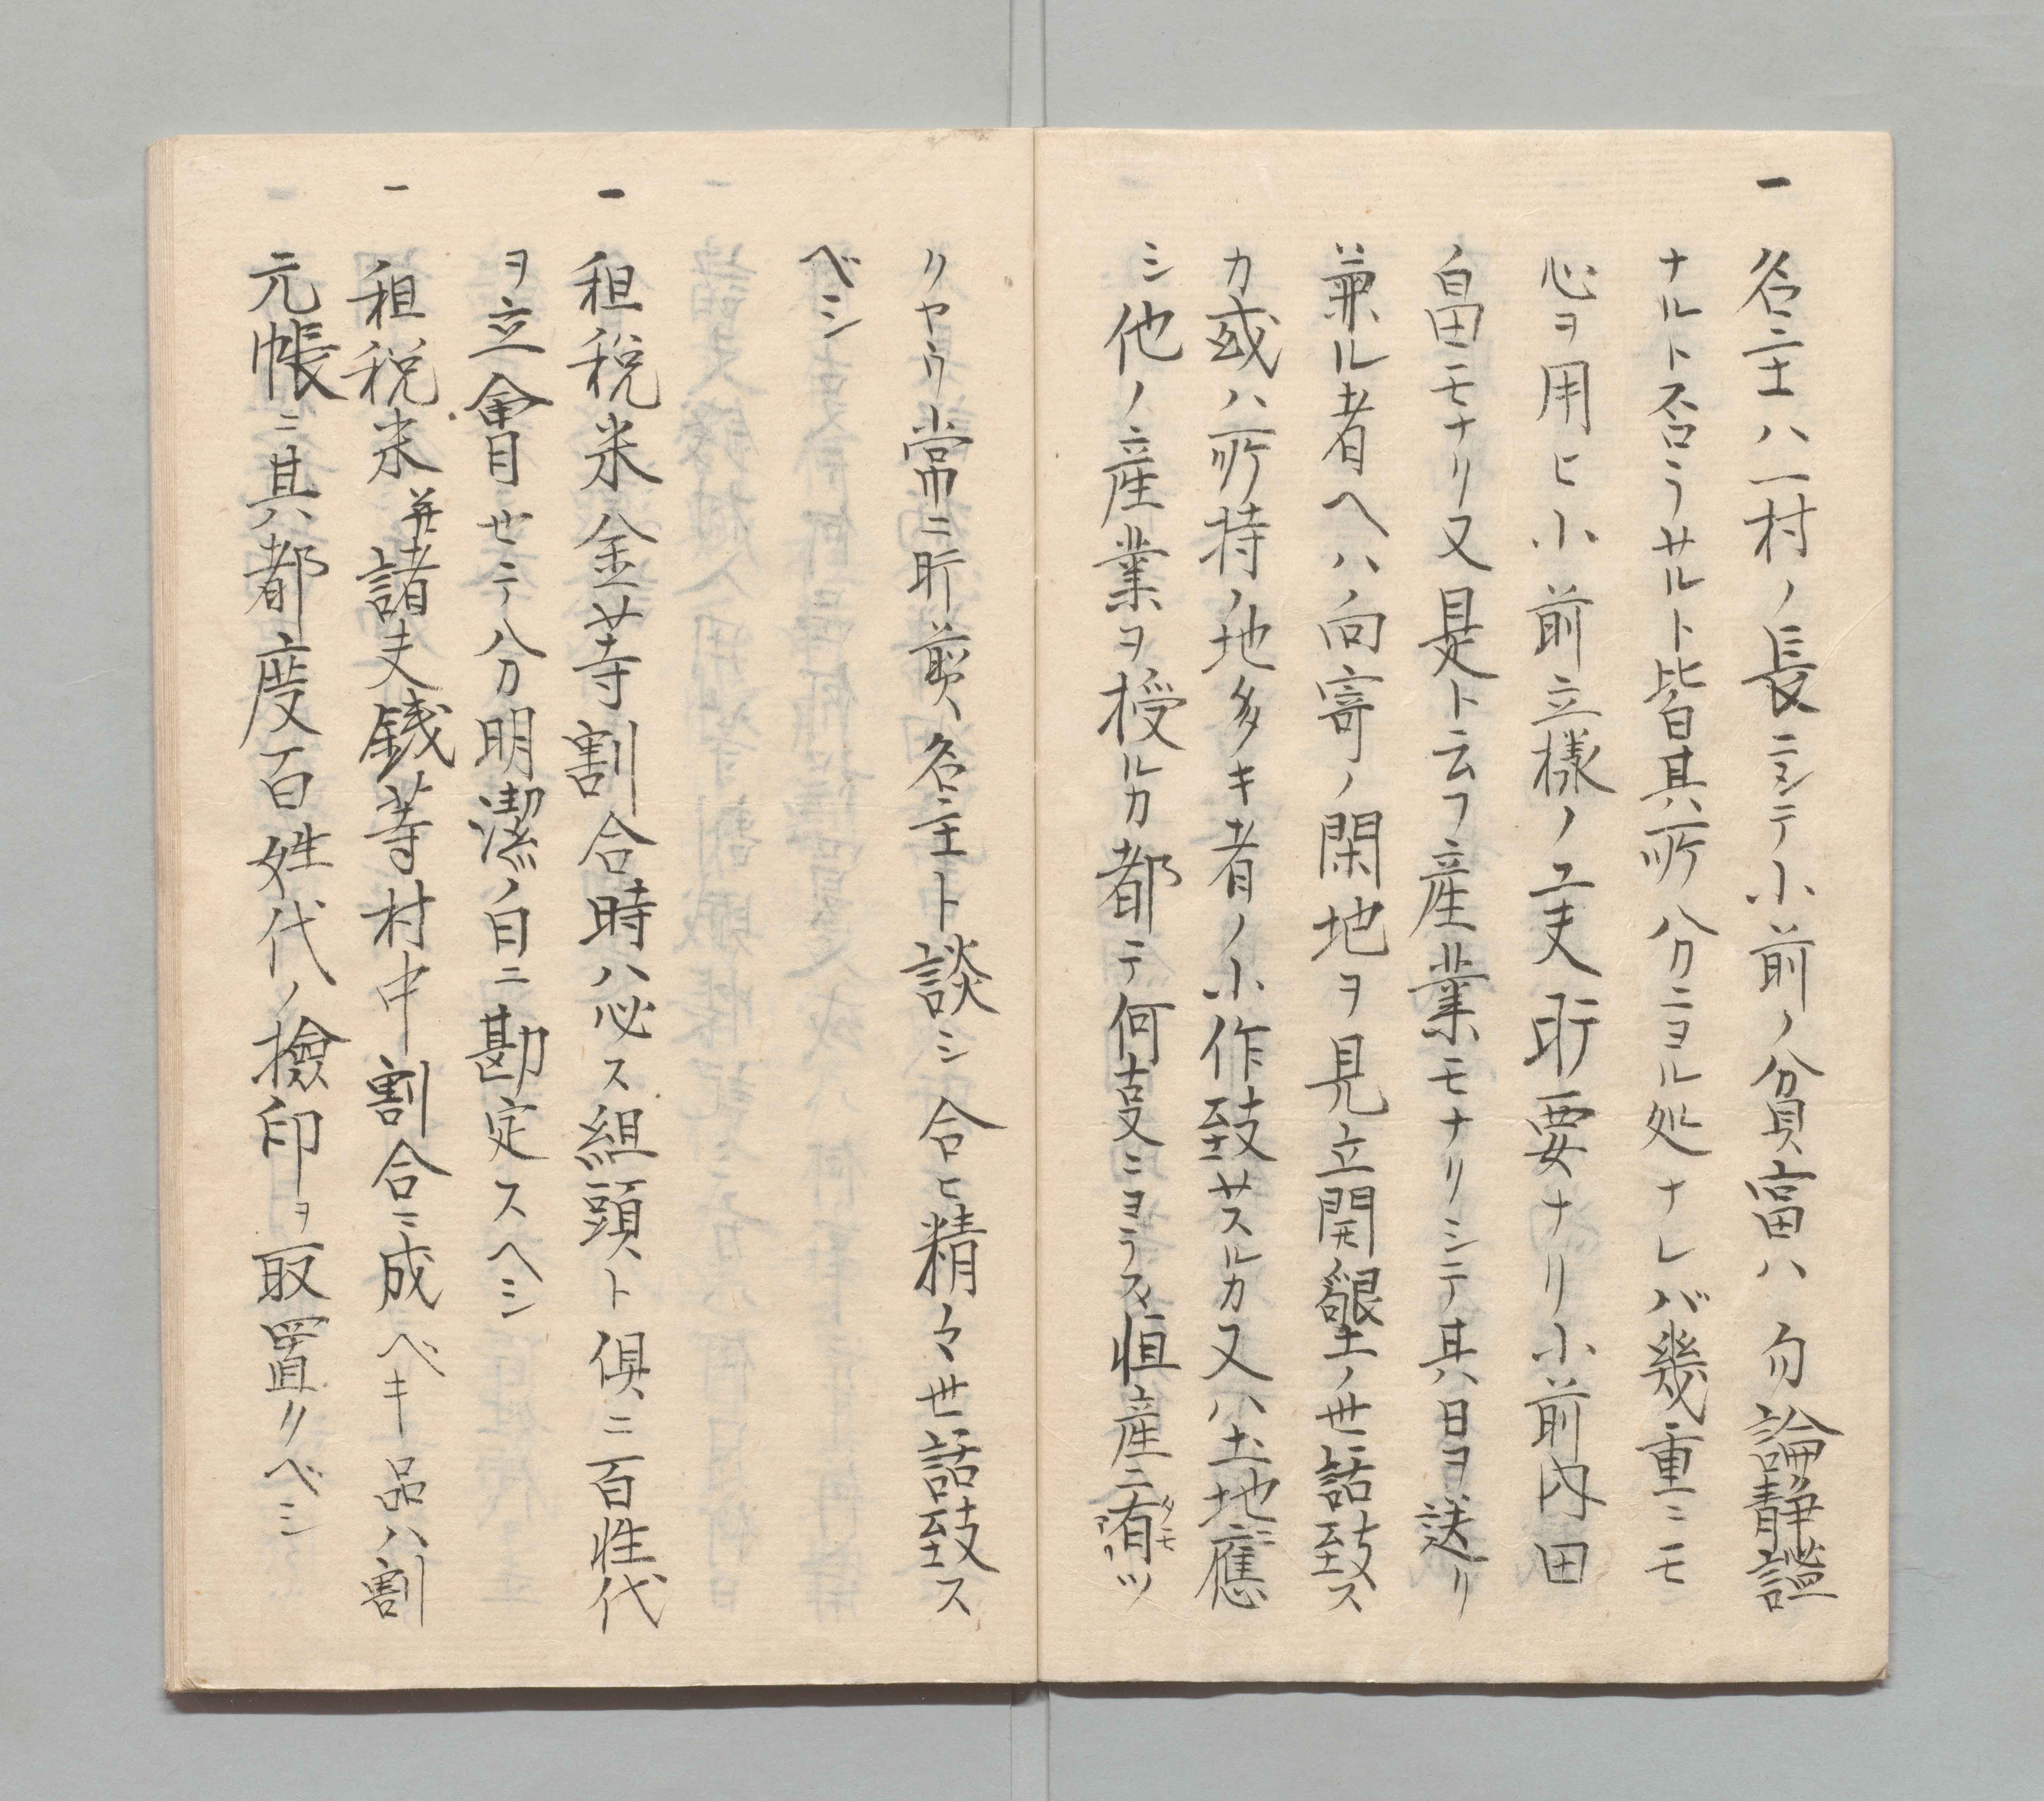 一 名主ハ一村ノ長ニシテ小前ノ貧冨ハ勿論静謐
ナルト否ラサルト皆其所分ニヨル処ナレバ幾重ニモ
心ヲ用ヒ小前立様ノ工夫肝要ナリ小前内田
畠モナリ又是ト云フ産業モナリシテ其日ヲ送リ
兼ル者ヘハ向寄ノ閑地ヲ見立開墾ノ世話致ス
カ或ハ所持ノ地多キ者ノ小作致サスルカ又ハ土地應
シ他ノ産業ヲ授ルカ都テ何支ニヨラス恒産ニ有ツ
タモ
リヤウ常ニ肝煎名主ト談シ合ヒ精々世話致ス
ベシ
一 租税米金等割合時ハ必ス組頭ト倶ニ百姓代
ヲ立會セテ分明潔白ニ勘定スヘシ
一 租税米并諸夫銭等村中割合ニ成ベキ品ハ割
元帳ニ其都度百姓代ノ撿印ヲ取置リベシ